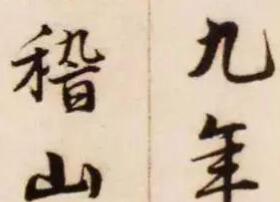 九年
稽山